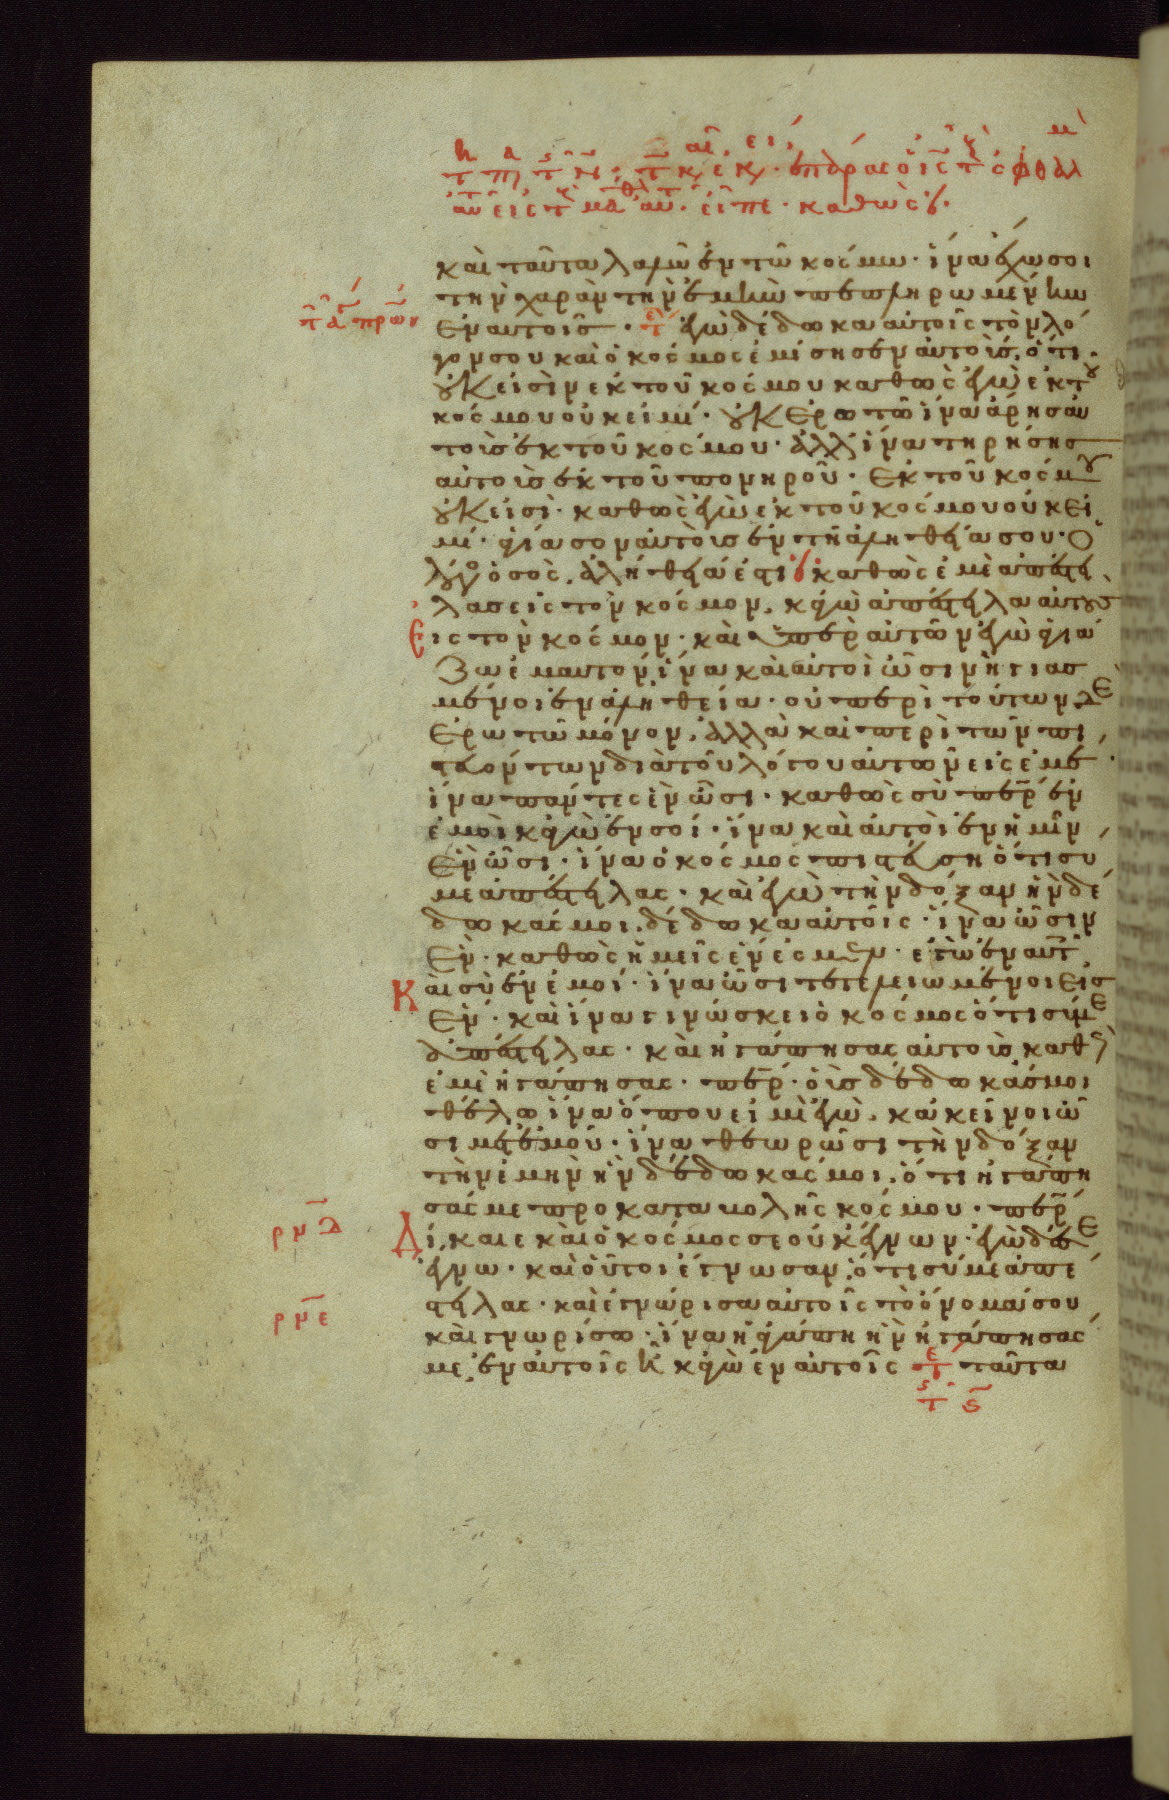 ἐπάρας ὁ ις τ ὀφθαλμ
εἰς τ μαθ αυ. εἶπε. καθὼς
καὶ ταῦτα λαλῶ ἐν τῶ κόσμω. ἵνα ἔχωσι
τὴν χαρὰν τὴν ἐμὴν πεπληρωμένην
ἐν αὐτοῖς. ἐγὼ δέδωκα αὐτοῖς τὸν λό
γον σου καὶ ὁ κόσμος ἐμίσησεν αὐτούς. ὅτι
οὐκ εἰσὶν ἐκ τοῦ κόσμου καθὼς ἐγὼ ἐκ τοῦ
κόσμου οὐκ εἰμί. οὐκ ἐρωτῶ ἵνα ἄρης αὐ
τοὺς ἐκ τοῦ κόσμου. ἀλλ' ἵνα τηρήσης
αὐτοὺς ἐκ τοῦ πονηροῦ. ἐκ τοῦ κόσμου
οὐκ εἰσὶ. καθὼς ἐγὼ ἐκ τοῦ κόσμου οὐκ εἰ
μί. ἁγίασον αὐτοὺς ἐν τῆ ἀληθεία σου. ὁ
λόγος ὁ σὸς, ἀλήθειά ἐστι. καθὼς ἐμὲ ἀπέστει
λας εἰς τὸν κόσμον, κἀγὼ ἀπέστειλα αὐτοὺς
εἰς τὸν κόσμον. καὶ ὑπὲρ αὐτῶν ἐγὼ ἁγιά
ζω ἐμαυτὸν, ἵνα καὶ αὐτοὶ ὦσιν ἡγιασ
μένοι ἐν ἀληθεία. οὐ περὶ τούτων δὲ
ἐρωτῶ μόνον, ἀλλὰ καὶ περὶ τῶν πι
στευόντων διὰ τοῦ λόγου αὐτῶν εἰς ἐμέ.
ἵνα πάντες ἓν ὦσι. καθὼς σὺ περ ἐν
ἐμοὶ κἀγὼ ἐν σοί. ἵνα καὶ αὐτοὶ ἐν ἡμῖν
ἓν ὦσι. ἵνα ὁ κόσμος πιστεύση ὅτι σύ
με ἀπέστειλας. καὶ ἐγὼ τὴν δόξαν ἣν δέ
δωκάς μοι. δέδωκα αὐτοῖς. ἵνα ὦσιν
ἓν. καθὼς ἡμεῖς ἕν ἐσμεν. ἐγὼ ἐν αὐτοῖς
καὶ σὺ ἐν ἐμοί. ἵνα ὦσι τετελειωμένοι εἰς
ἕν. καὶ ἵνα γινώσκει ὁ κόσμος ὅτι σύ με
ἀπέστειλας. καὶ ἠγάπησας αὐτοὺς καθὼς
ἐμὲ ἠγάπησας. περ. οὓς δέδωκάς μοι
θέλω ἵνα ὅπου εἰμὶ ἐγὼ, κἀκεῖνοι ὦ
σι μετ' ἐμοῦ. ἵνα θεωρῶσι τὴν δόξαν
τὴν ἐμὴν ἣν δέδωκάς μοι. ὅτι ἠγάπη
σάς με προ καταβολῆς κόσμου. περ
δίκαιε καὶ ὁ κόσμος σε οὐκ ἔγνων. ἐγὼ δέ σε
ἔγνω. καὶ οὗτοι ἔγνωσαν, ὅτι σύ με ἀπέ
στειλας. καὶ ἐγνώρισα αὐτοῖς τὸ ὄνομά σου
καὶ γνωρίσω. ἵνα ἡ ἀγάπη ἣν ἠγάπησάς
με, ἐν αὐτοῖς ἦ κἀγὼ ἐν αὐτοῖς ταῦτα
ρνδ
ρνε